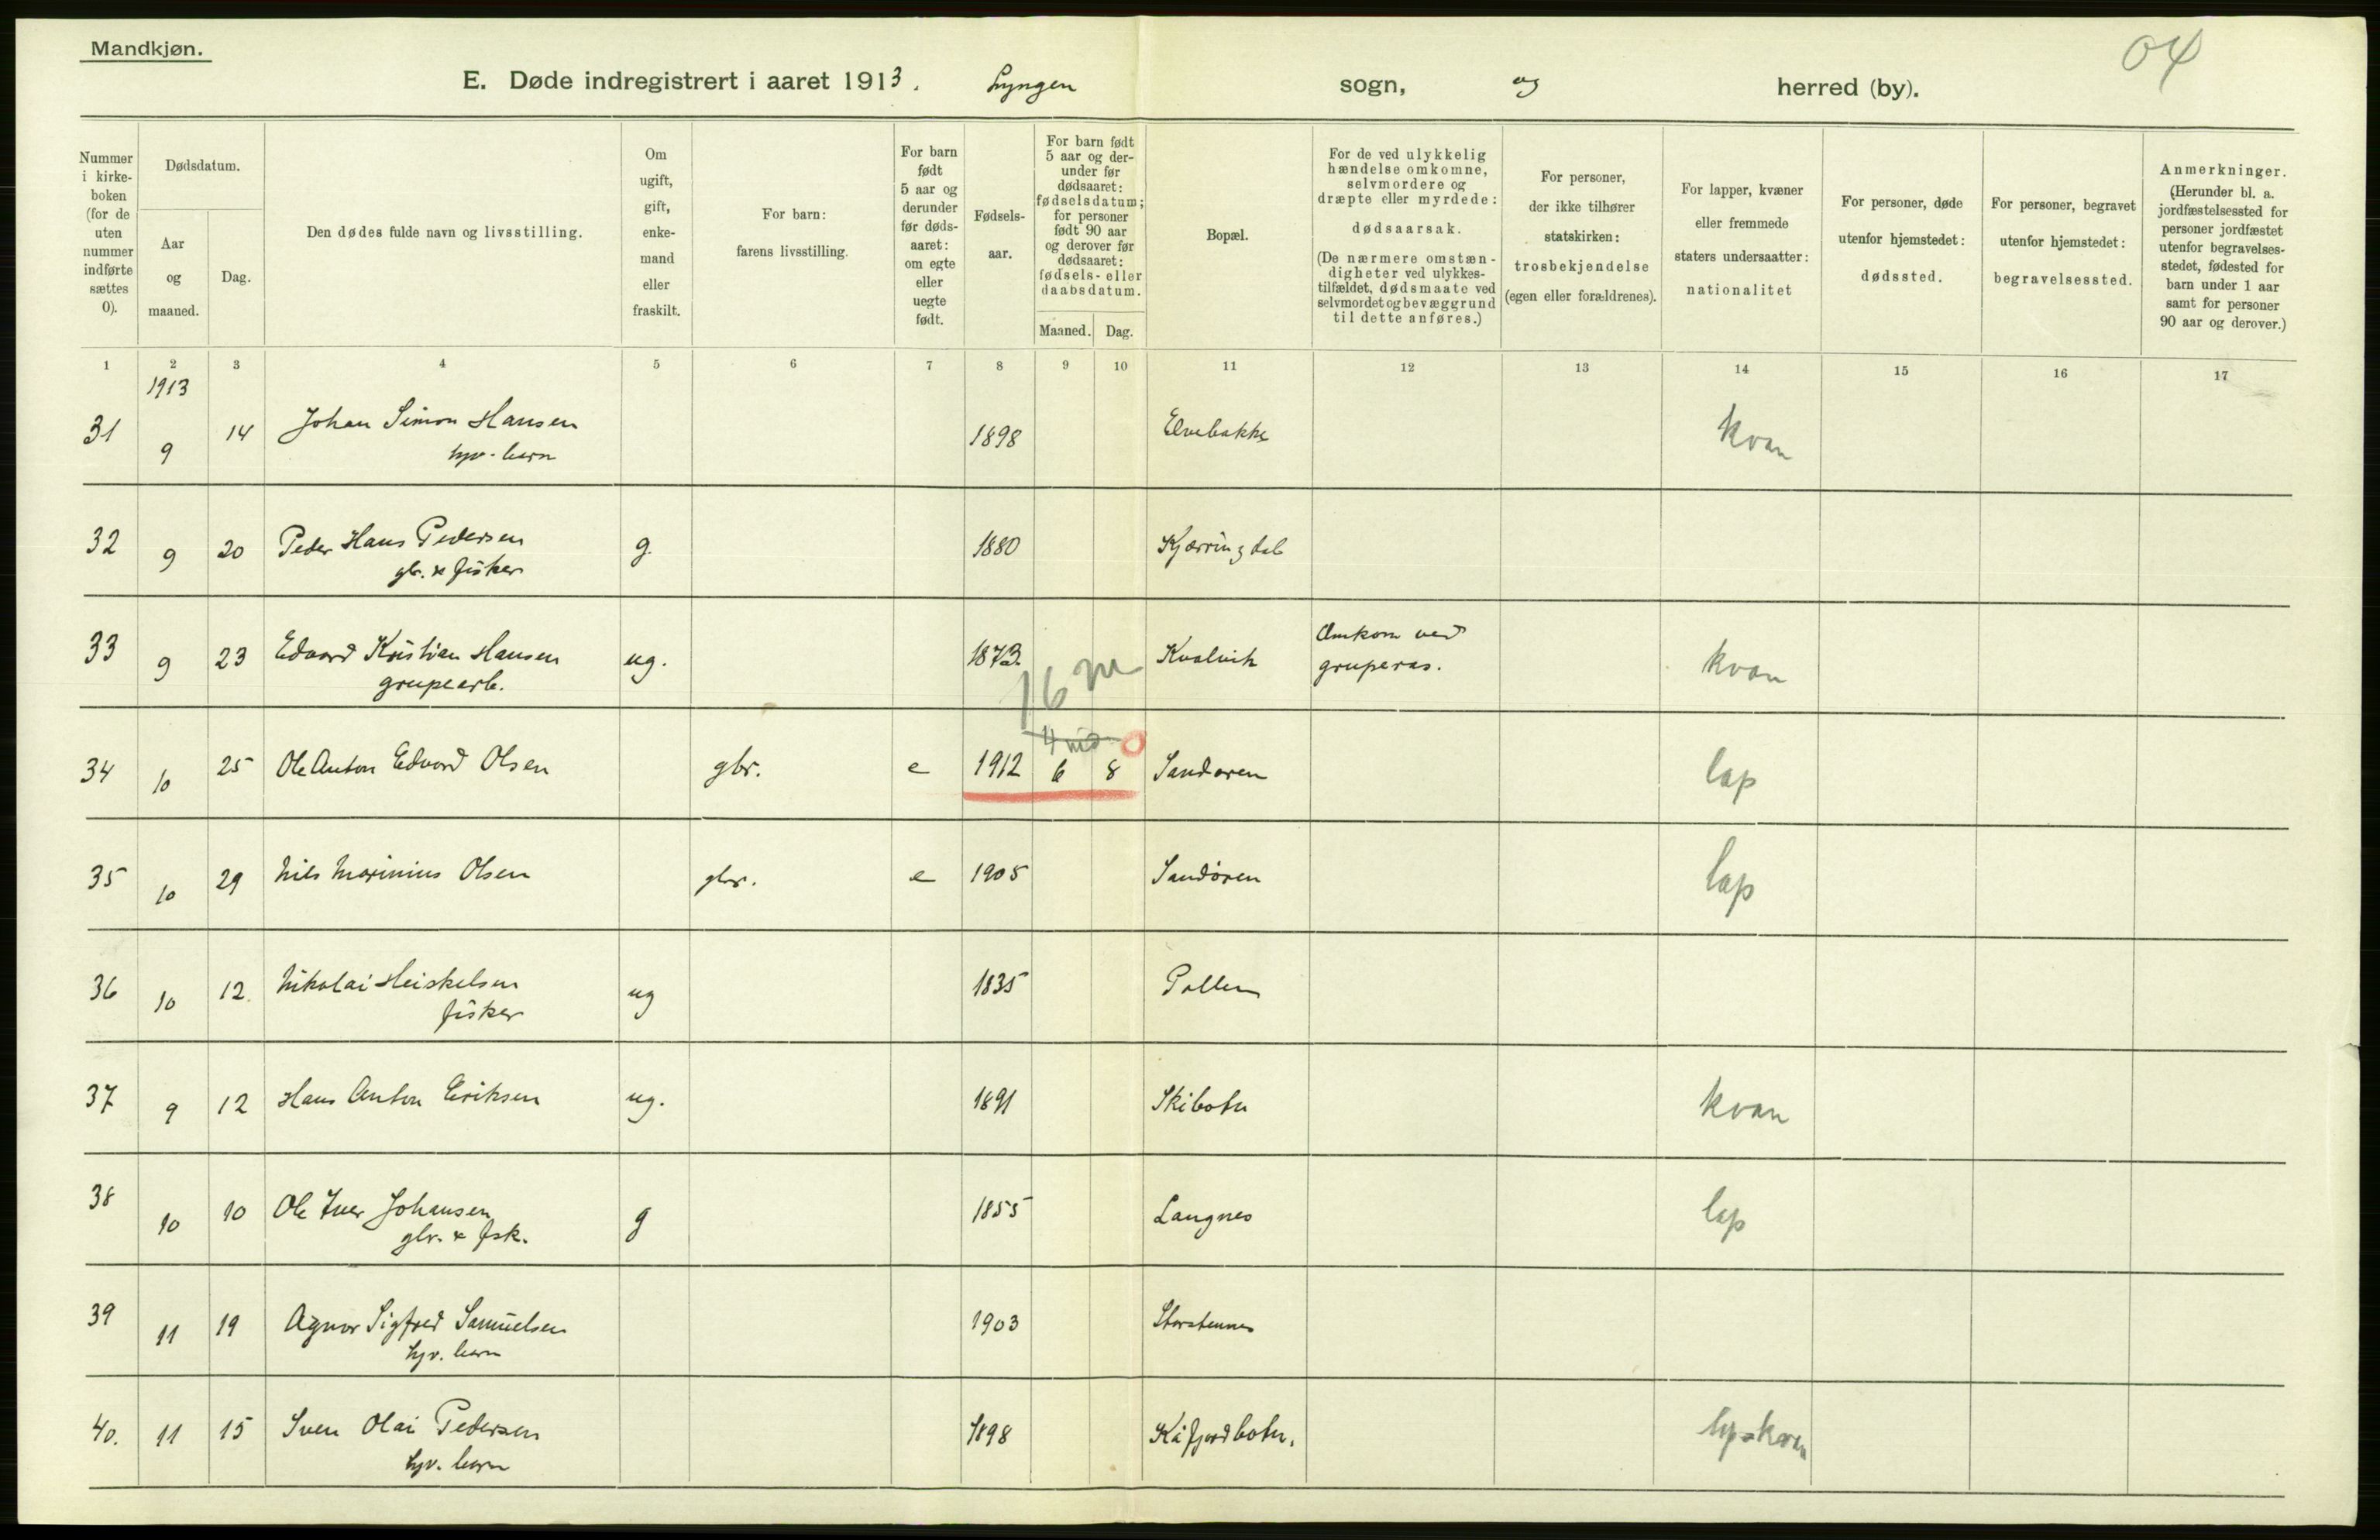 Mandkjøn.
04
E. Døde indregistrert i aaret 1913. Lyngen sogn, og herred (by).
Nummer i kirkeboken (for de uten nummer indførte sættes 0).
Dødsdatum.
Aar og maaned.
Dag.
Den dødes fulde navn og livsstilling.
Om ugift, gift, enkemand eller fraskilt.
For barn: farens livsstilling.
For barn født 5 aar og derunder før dødsaaret: om egte eller uegte født.
Fødselsaar.
For barn født 5 aar og derunder før dødsaaret: fødselsdatum; for personer født 90 aar og derover før dødsaaret: fødsels- eller daabsdatum.
Maaned. Dag.
Bopæl.
For de ved ulykkelig hændelse omkomne, selvmordere og dræpte eller myrdede: dødsaarsak. (De nærmere omstændigheter ved ulykkestilfældet, dødsmaate ved selvmordet og bevæggrund til dette anføres.)
For personer, der ikke tilhører statskirken: trosbekjendelse (egen eller forældrenes).
For lapper, kvæner eller fremmede staters undersaatter: nationalitet
For personer, døde utenfor hjemstedet: dødssted.
For personer, begravet utenfor hjemstedet: begravelsessted.
Anmerkninger. (Herunder bl. a. jordfæstelsessted for personer jordfæstet utenfor begravelsesstedet, fødested for barn under 1 aar samt for personer 90 aar og derover.)
1 2 3 4 5 6 7 8 9 10 11 12 13 14 15 16 17
1913
31 9 14 Johan Simon Hansen 1898 Elvebakke kvan
hjv. barn
32 9 20 Peder Hans Pedersen g. 1880 Kjærringdal
gbr. & fisker
33 9 23 Edvard Kristian Hansen ug. 1873 Kvalvik Omkom ved gruperas. kvan
grupearb.
16 m
4 md 0
34 10 25 Ole Anton Edvard Olsen gbr. e 1912 6 8 Sandøren lap
35 10 29 Nils Marinius Olsen gbr. e 1905 Sandøren lap
36 10 12. Nikolai Heiskelsen ug 1835 Pollen
fisker
37 9 12 Hans Anton Eriksen ug. 1891 Skibotn kvan
38 10 10 Ole Iver Johansen g 1855 Langnes lap
gbr. & fsk.
39 11 19 Agnar Sigfred Samuelsen 1903 Storstennes
hjv. barn
40. 11 15 Sven Olai Pedersen 1898 Kåfjordbotn. lap-kvan
hjv. barn